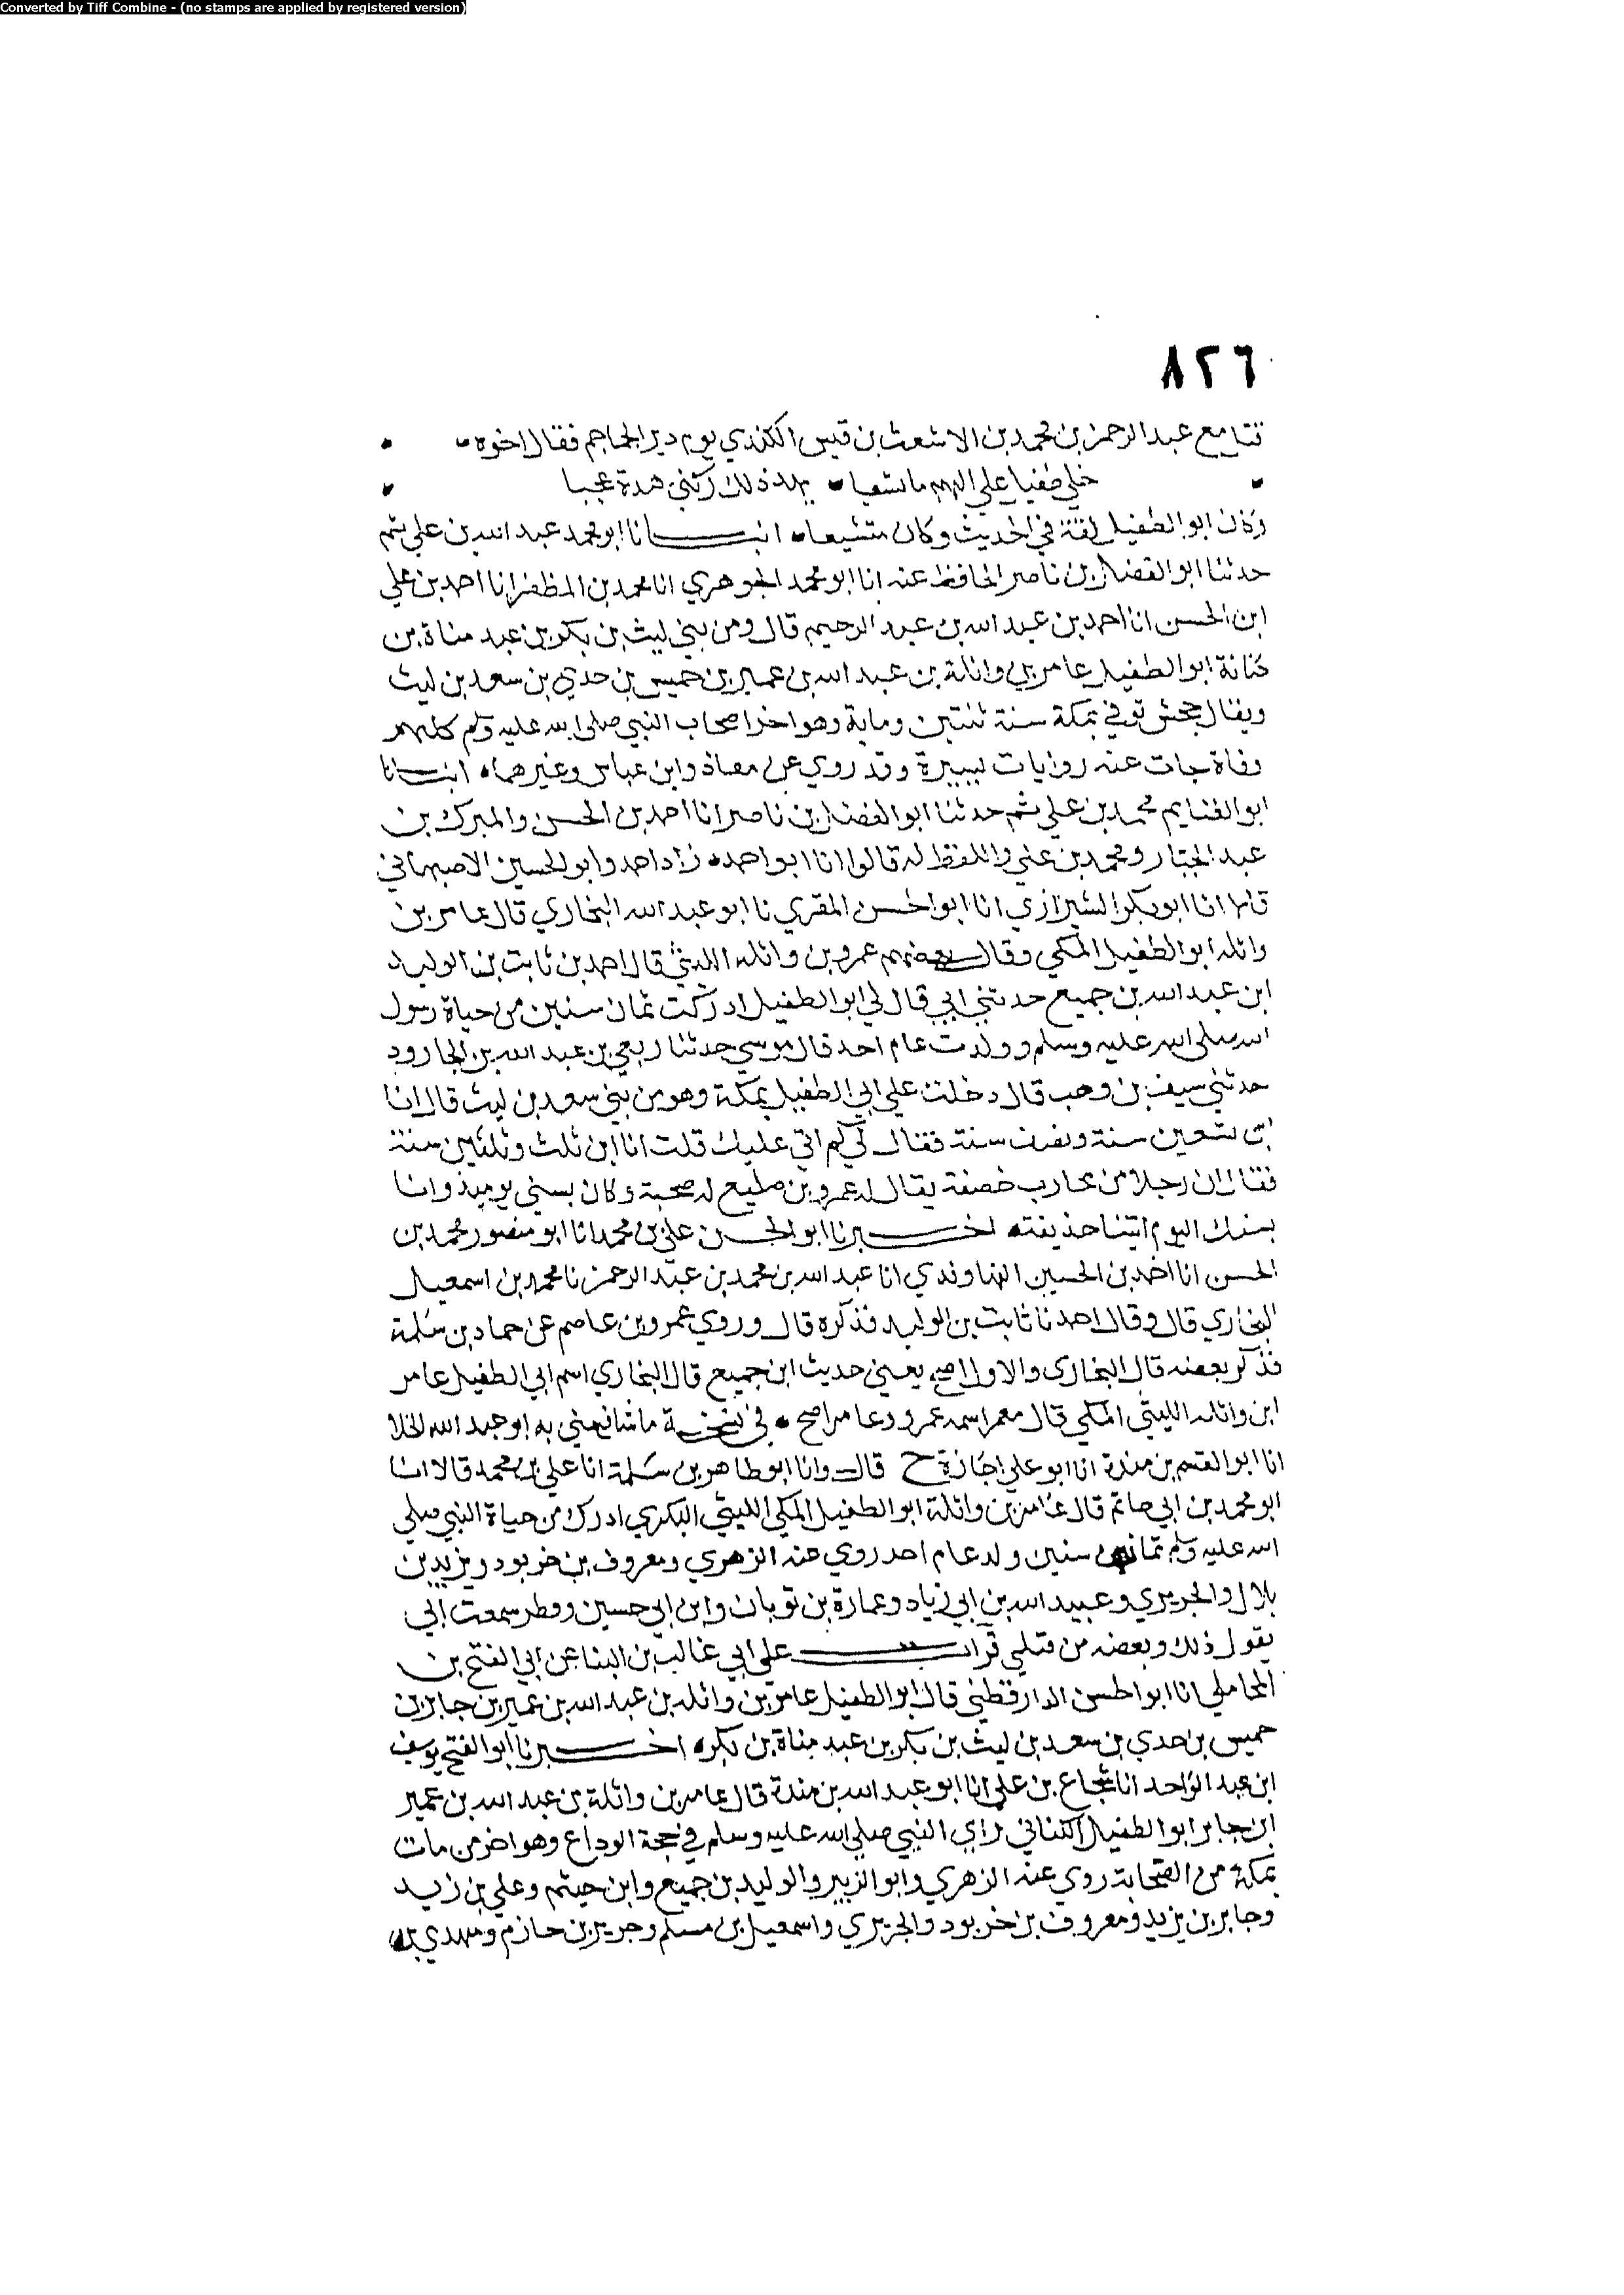 Converted by Tiff Combine - (no stamps are applied by registered version)
٨٢٦
قتل مع عبد الرحمن بن محمد بن الاشعث بن قيس الكندي يوم دير الجماجم فقال اخوه
خلى طفيل علي الهم ما نشعبا وهد ذلك ركني هدة عجبا
وكان ابو الطفيل ثقة في الحديث وكان متشيعا انبانا ابو محمد عبد الله بن علي ثم
حدثنا ابو الفضل بن ناصر الحافظ عنه انا ابو محمد الجوهري انا محمد بن المظفر انا احمد بن علي
ابن الحسن انا احمد بن عبد الله بن عبد الرحيم قال ومن بني ليث بن بكر بن عبد مناة بن
كنانة ابو الطفيل عامر بن واثلة بن عبد الله بن عمير بن حميس بن حدي بن سعد بن ليث
ويقال جحش توفي بمكة سنة ثنتين وماية وهو اخر اصحاب النبي صلى الله عليه وسلم كلهم
وفاة جات عنه روايات يسيرة وقد روي عن معاذ وابن عباس وغيرهما انبانا
ابو الغنايم محمد بن علي ثم حدثنا ابو الفضل بن ناصر انا احمد بن الحسن والمبرك بن
عبد الجبار ومحمد بن علي واللفظ له قالوا انا ابو احمد زاد احمد وابو الحسين الاصبهاني
قالا انا ابو بكر الشيرازي انا ابو الحسن المقري نا ابو عبد الله البخاري قال عامر بن
واثله ابو الطفيل المكي وقال بعضهم عمرو بن واثله الليثي قال احمد بن ثابت بن الوليد
ابن عبد الله بن جميع حدثني ابي قال لي ابو الطفيل ادركت ثمان سنين من حياة رسول
الله صلى الله عليه وسلم وولدت عام احد قال موسي حدثنا ربعي بن عبد الله بن الجارود
حدثني سيف بن وهب قال دخلت علي ابي الطفيل بمكة وهو من بني سعد بن ليث قال انا
ابن تسعين سنة ونصف سنة فقال لي كم اتي عليك قلت انا ابن ثلث وثلثين سنة
فقال ان رجلا من محارب خصفة يقال له عمرو بن صليع له صحبة وكان بسني يوميذ وانا
بسنك اليوم اتينا حذيفة اخبرنا ابو الحسن علي بن محمد انا ابو منصور محمد بن
الحسن انا احمد بن الحسين النهاوندي انا عبد الله بن محمد بن عبد الرحمن نا محمد بن اسمعيل
البخاري قال وقال احمد نا ثابت بن الوليد فذكره قال وروي عمرو بن عاصم عن حماد بن سلمة
فذكر بعضه قال البخاري والاول اصح يعني حديث ابن جميع قال البخاري اسم ابي الطفيل عامر
ابن واثله الليثي المكي قال معمر اسمه عمرو وعامر اصح في نسخة ما شافهني به ابو عبد الله الخلا
انا ابو القسم بن مندة انا ابو علي اجازة ح قال وانا ابو طاهر بن سلمة انا علي بن محمد قالا انا
ابو محمد بن ابي حاتم قال عامر بن واثلة ابو الطفيل المكي الليثي البكري ادرك من حياة النبي صلى
الله عليه وسلم ثمان سنين ولد عام احد روي عنه الزهري ومعروف بن خربوذ ويزيد بن
بلال والجريري وعبيد الله بن ابي زياد وعمارة بن ثوبان وابن ابي حسين وفطر سمعت ابي
يقول ذلك وبعضه من قبلي قرات علي ابي غالب بن البنا عن ابي الفتح بن
المحاملي انا ابو الحسن الدارقطني قال ابو الطفيل عامر بن واثله بن عبد الله بن عمير بن جابر بن
حميس بن حدي بن سعد بن ليث بن بكر بن عبد مناة بن بكر اخبرنا ابو الفتح يوسف
ابن عبد الواحد انا شجاع بن علي انا ابو عبد الله بن مندة قال عامر بن واثلة بن عبد الله بن عمير
ابن جابر ابو الطفيل الكناني راي النبي صلى الله عليه وسلم في حجة الوداع وهو اخر من مات
بمكة من الصحابة روي عنه الزهري وابو الزبير والوليد بن جميع وابن خيثم وعلي بن زيد
وجابر بن يزيد ومعروف بن خربوذ والجريري واسمعيل بن مسلم وجرير بن حازم ومهدي بن